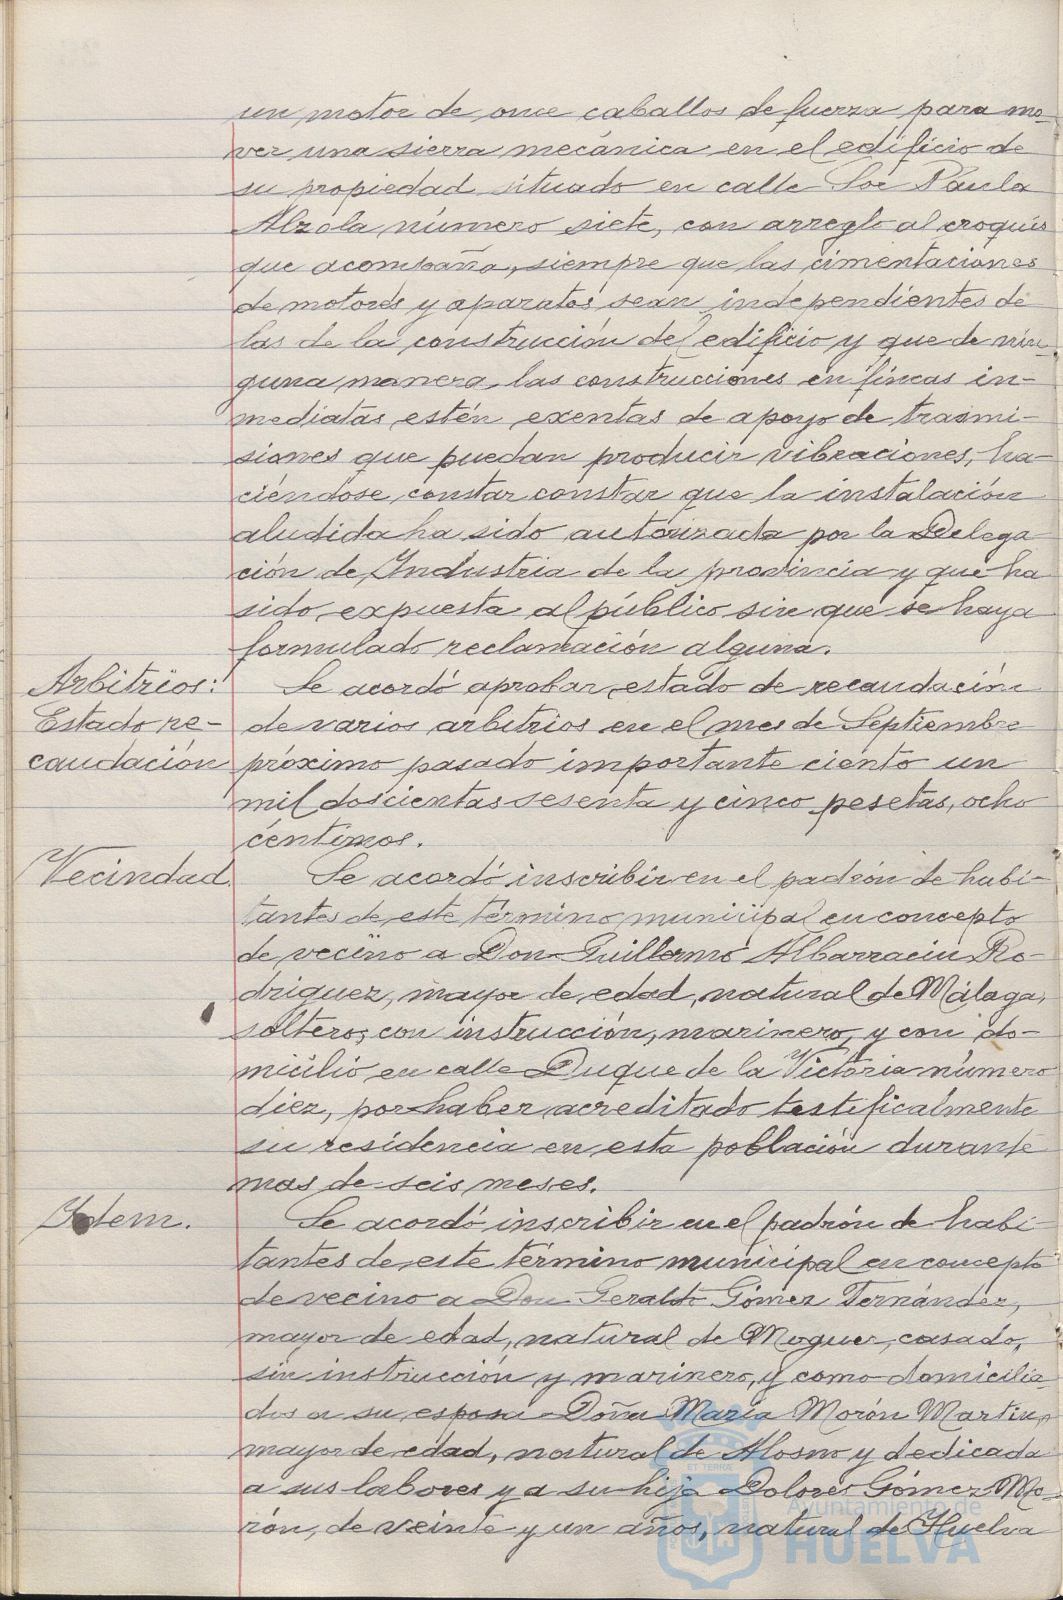 un motor de once caballos de fuerza para mo-
ver una sierra mecánica en el edificio de
su propiedad situado en calle Sor Paula
Alzola número siete, con arreglo al croquis
que acompaña, siempre que las cimentaciones
de motores y aparatos sean independientes de
las de la construcción del edificio y que de nin-
guna manera las construcciones en fincas in-
mediatas estén exentas de apoyo de trasmi-
siones que puedan producir vibraciones, ha-
ciéndose constar constar que la instalación
aludida ha sido autorizada por la Delega
ción de Industria de la provincia y que ha
sido expuesta al público sin que se haya
formulado reclamación alguna.
Arbitrios:
Estado re-
caudación
Se acordó aprobar estado de recaudación
de varios arbitrios en el mes de Septiembre
próximo pasado importante ciento un
mil doscientas sesenta y cinco pesetas, ocho
centimos.
Vecindad.
Se acordó inscribir en el padrón de habi-
tantes de este término municipal en concepto
de vecino a Don Guillermo Albarracin Ro-
driguez, mayor de edad, natural de Málaga,
soltero, con instrucción, marinero, y con do-
micilio en calle Duque de la Victoria número
diez, por haber acreditado testificalmente
su residencia en esta población durante
mas de seis meses.
Idem.
Se acordó inscribir en el padrón de habi-
tantes de este término municipal en concepto
de vecino a Don Geraldo Gómez Fernández,
mayor de edad, natural de Moguer, casado,
sin instrucción y marinero, y como domicilia-
dos a su esposa Doña María Morón Martin,
mayor de edad, natural de Alosno y dedicada
a sus labores y a su hija Dolores Gómez Mo-
rón, de veinte y un años, natural de Huelva
Ayuntamiento de
HUELVA